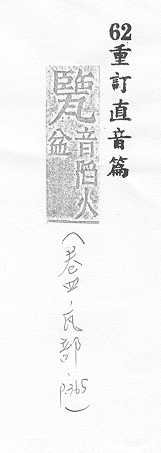 62重訂直音篇
音陷火
盆
(卷四·瓦部·p.365)